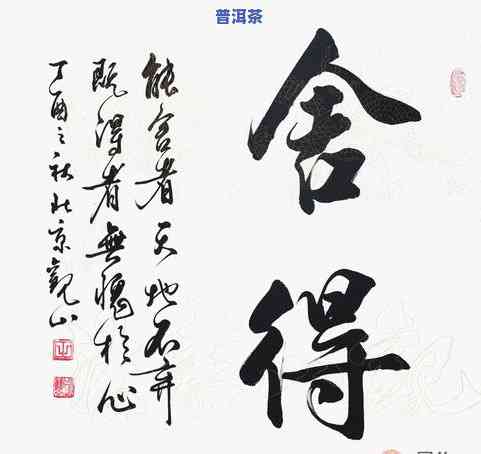 普洱茶
舍得
能舍者天地不弃
既得者無愧於心
丁酉之秋北京觀山